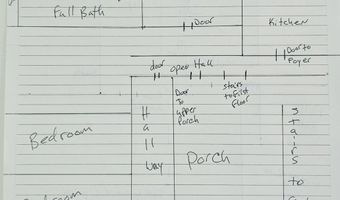 Full Bath
Door
Kitchen
Door to
Foyer
door
open Hall
Door
To
upper
Porch
stairs
to First
Floor
Hallway
Bedroom
Porch
Stairs to
Bedroom